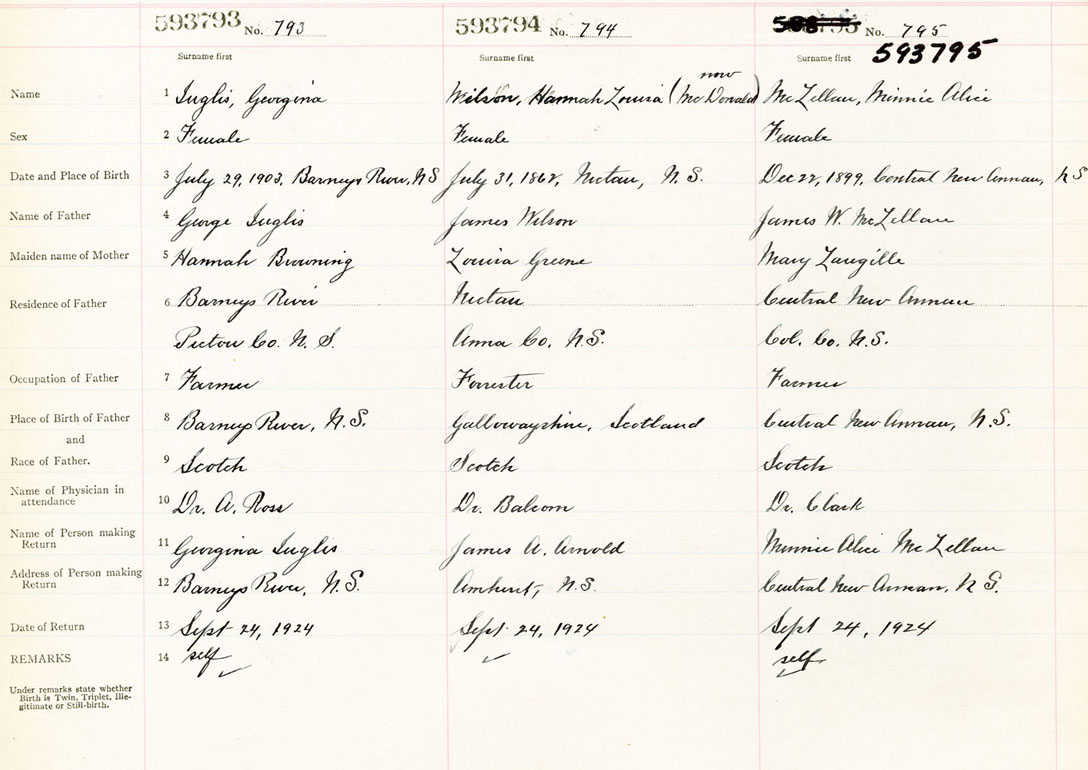 593793 No. 793 593794 No. 794 No. 795
593795
Surname first Surname first Surname first
now
Name 1 Inglis, Georgina Wilson, Hannah Louisa (McDonald) McLellan, Minnie Alice
Sex 2 Female Female Female
Date and Place of Birth 3 July 29, 1903, Barneys River, N S July 31, 1862, Nictau, N. S. Dec 22, 1899, Central New Annan, N S
Name of Father 4 George Inglis James Wilson James W. McLellan
Maiden name of Mother 5 Hannah Browning Louisa Greene Mary Langille
Residence of Father 6 Barneys River Nictau Central New Annan
Pictou Co. N. S. Anna Co, N.S. Col. Co. N.S.
Occupation of Father 7 Farmer Forrester Farmer
Place of Birth of Father 8 Barneys River, N.S. Gallowayshire, Scotland Central New Annan, N.S.
and
Race of Father. 9 Scotch Scotch Scotch
Name of Physician in
attendance 10 Dr. A. Ross Dr. Balcom Dr. Clark
Name of Person making
Return 11 Georgina Inglis James A. Arnold Minnie Alice McLellan
Address of Person making
Return 12 Barneys River, N.S. Amherst, N.S. Central New Annan, N S.
Date of Return 13 Sept 24, 1924 Sept 24, 1924 Sept 24, 1924
REMARKS 14 self self
Under remarks state whether
Birth is Twin, Triplet, Ille-
gitimate or Still-birth.